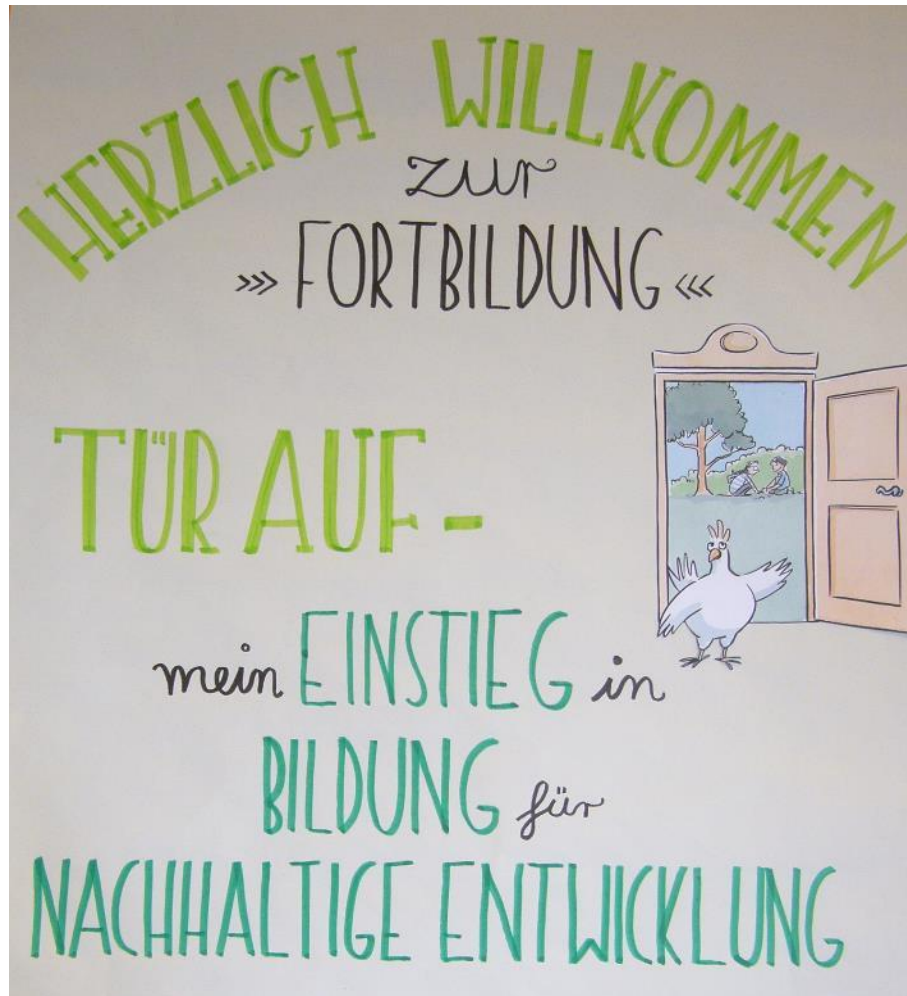 HERZLICH WILLKOMMEN
zur
»» FORTBILDUNG ««
TÜR AUF -
mein EINSTIEG in
BILDUNG für
NACHHALTIGE ENTWICKLUNG